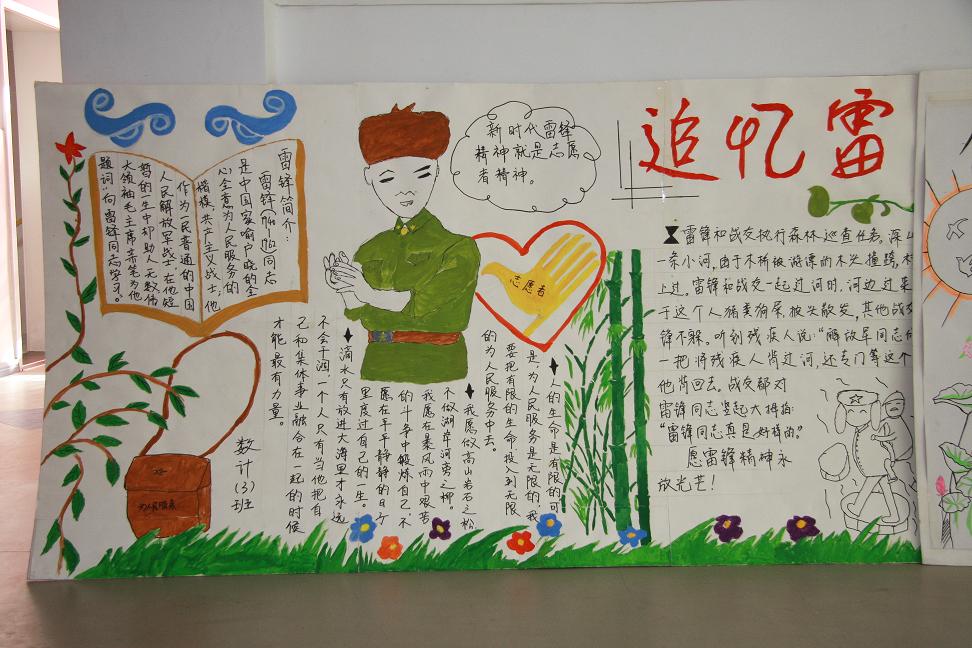 追忆雷
新时代雷锋
精神就是志愿
者精神。
雷锋简介：
雷锋(1940-1962)同志
是中国家喻户晓的全
心全意为人民服务的
楷模,共产主义战士;他
作为一民普通的中国
人民解放军战士,在他短
暂的生中却助人无数,伟
大领袖毛主席亲笔为他
题词"向雷锋同志学习。
志愿者
为人民服务
数计(3)班
♦人的生命是有限的,可
是,为人民服务是无限的,我
要把有限的生命投入到无限
的为人民服务中去。
♦我愿做高山岩石之松
不做湖岸河旁之柳。
我愿在暴风雨中艰苦
的斗争中锻炼自己,不
愿在平平静静的日子
里度过自己的一生。
♦滴水只有放进大海里才永远
不会干涸,一个人只有当他把自
己和集体事业融合在一起的时候
才能最有力量。
雷锋和战友执行森林巡查任务。深山
一条小河,由于木桥被漂漂的木头撞跨,
上过。雷锋和战友一起过河时,河边过来
于这个人猪粪狗屎,披头散发,其他战友
锋不躲。听到残疾人说:"解放军同志
一把将残疾人背过河,还专门等这个
他背回去。战友都对
雷锋同志竖起大拇指:
"雷锋同志真是好样的"
愿雷锋精神永
放光芒!